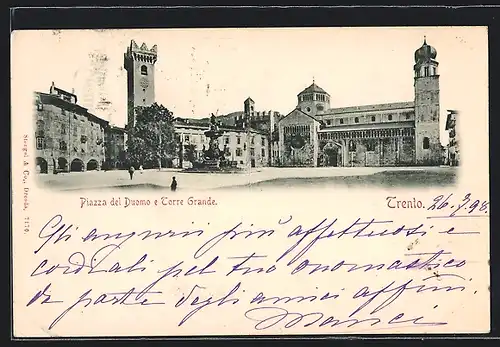 Piazza del Duomo e Torre Grande.
Trento. 26.7.98
Stengel & Co., Dresda, 7176
Gli auguri più affettuosi e
cordiali pel tuo onomastico
da parte degli amici affini.